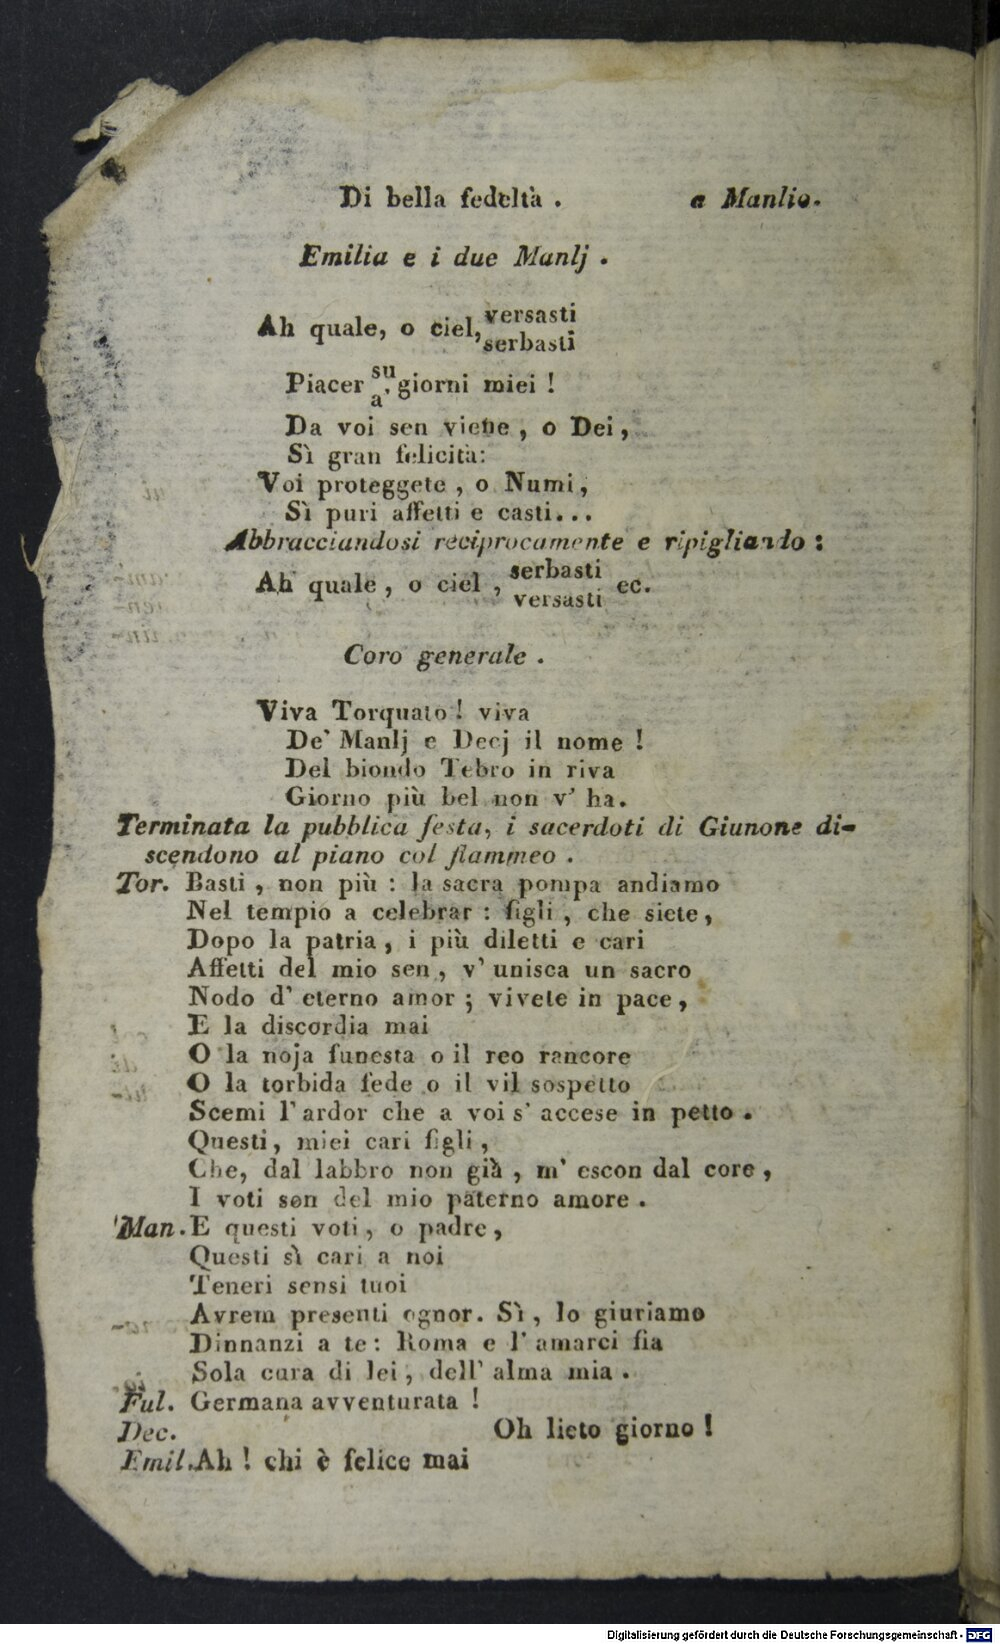 Di bella fedeltà . a Manlio.
Emilia e i due Manlj .
Ah quale, o ciel, versasti
serbasti
Piacer su giorni miei !
a'
Da voi sen viene , o Dei ,
Sì gran felicità:
Voi proteggete , o Numi ,
Sì puri affetti e casti...
Abbracciandosi reciprocamente e ripigliando :
Ah quale , o ciel , serbasti ec.
versasti
Coro generale .
Viva Torquato ! viva
De' Manlj e Decj il nome !
Del biondo Tebro in riva
Giorno più bel non v' ha.
Terminata la pubblica festa, i sacerdoti di Giunone di-
scendono al piano col flammeo .
Tor. Basti , non più : la sacra pompa andiamo
Nel tempio a celebrar : figli , che siete ,
Dopo la patria , i più diletti e cari
Affetti del mio sen , v' unisca un sacro
Nodo d' eterno amor ; vivete in pace ,
E la discordia mai
O la noja funesta o il reo rancore
O la torbida fede o il vil sospetto
Scemi l' ardor che a voi s' accese in petto .
Questi , miei cari figli ,
Che, dal labbro non già , m' escon dal core ,
I voti son del mio paterno amore .
Man. E questi voti , o padre ,
Questi sì cari a noi
Teneri sensi tuoi
Avrem presenti ognor. Sì , lo giuriamo
Dinnanzi a te : Roma e l' amarci fia
Sola cura di lei , dell' alma mia .
Ful. Germana avventurata !
Dec. Oh lieto giorno !
Emil. Ah ! chi è felice mai
Digitalisierung gefördert durch die Deutsche Forschungsgemeinschaft - DFG